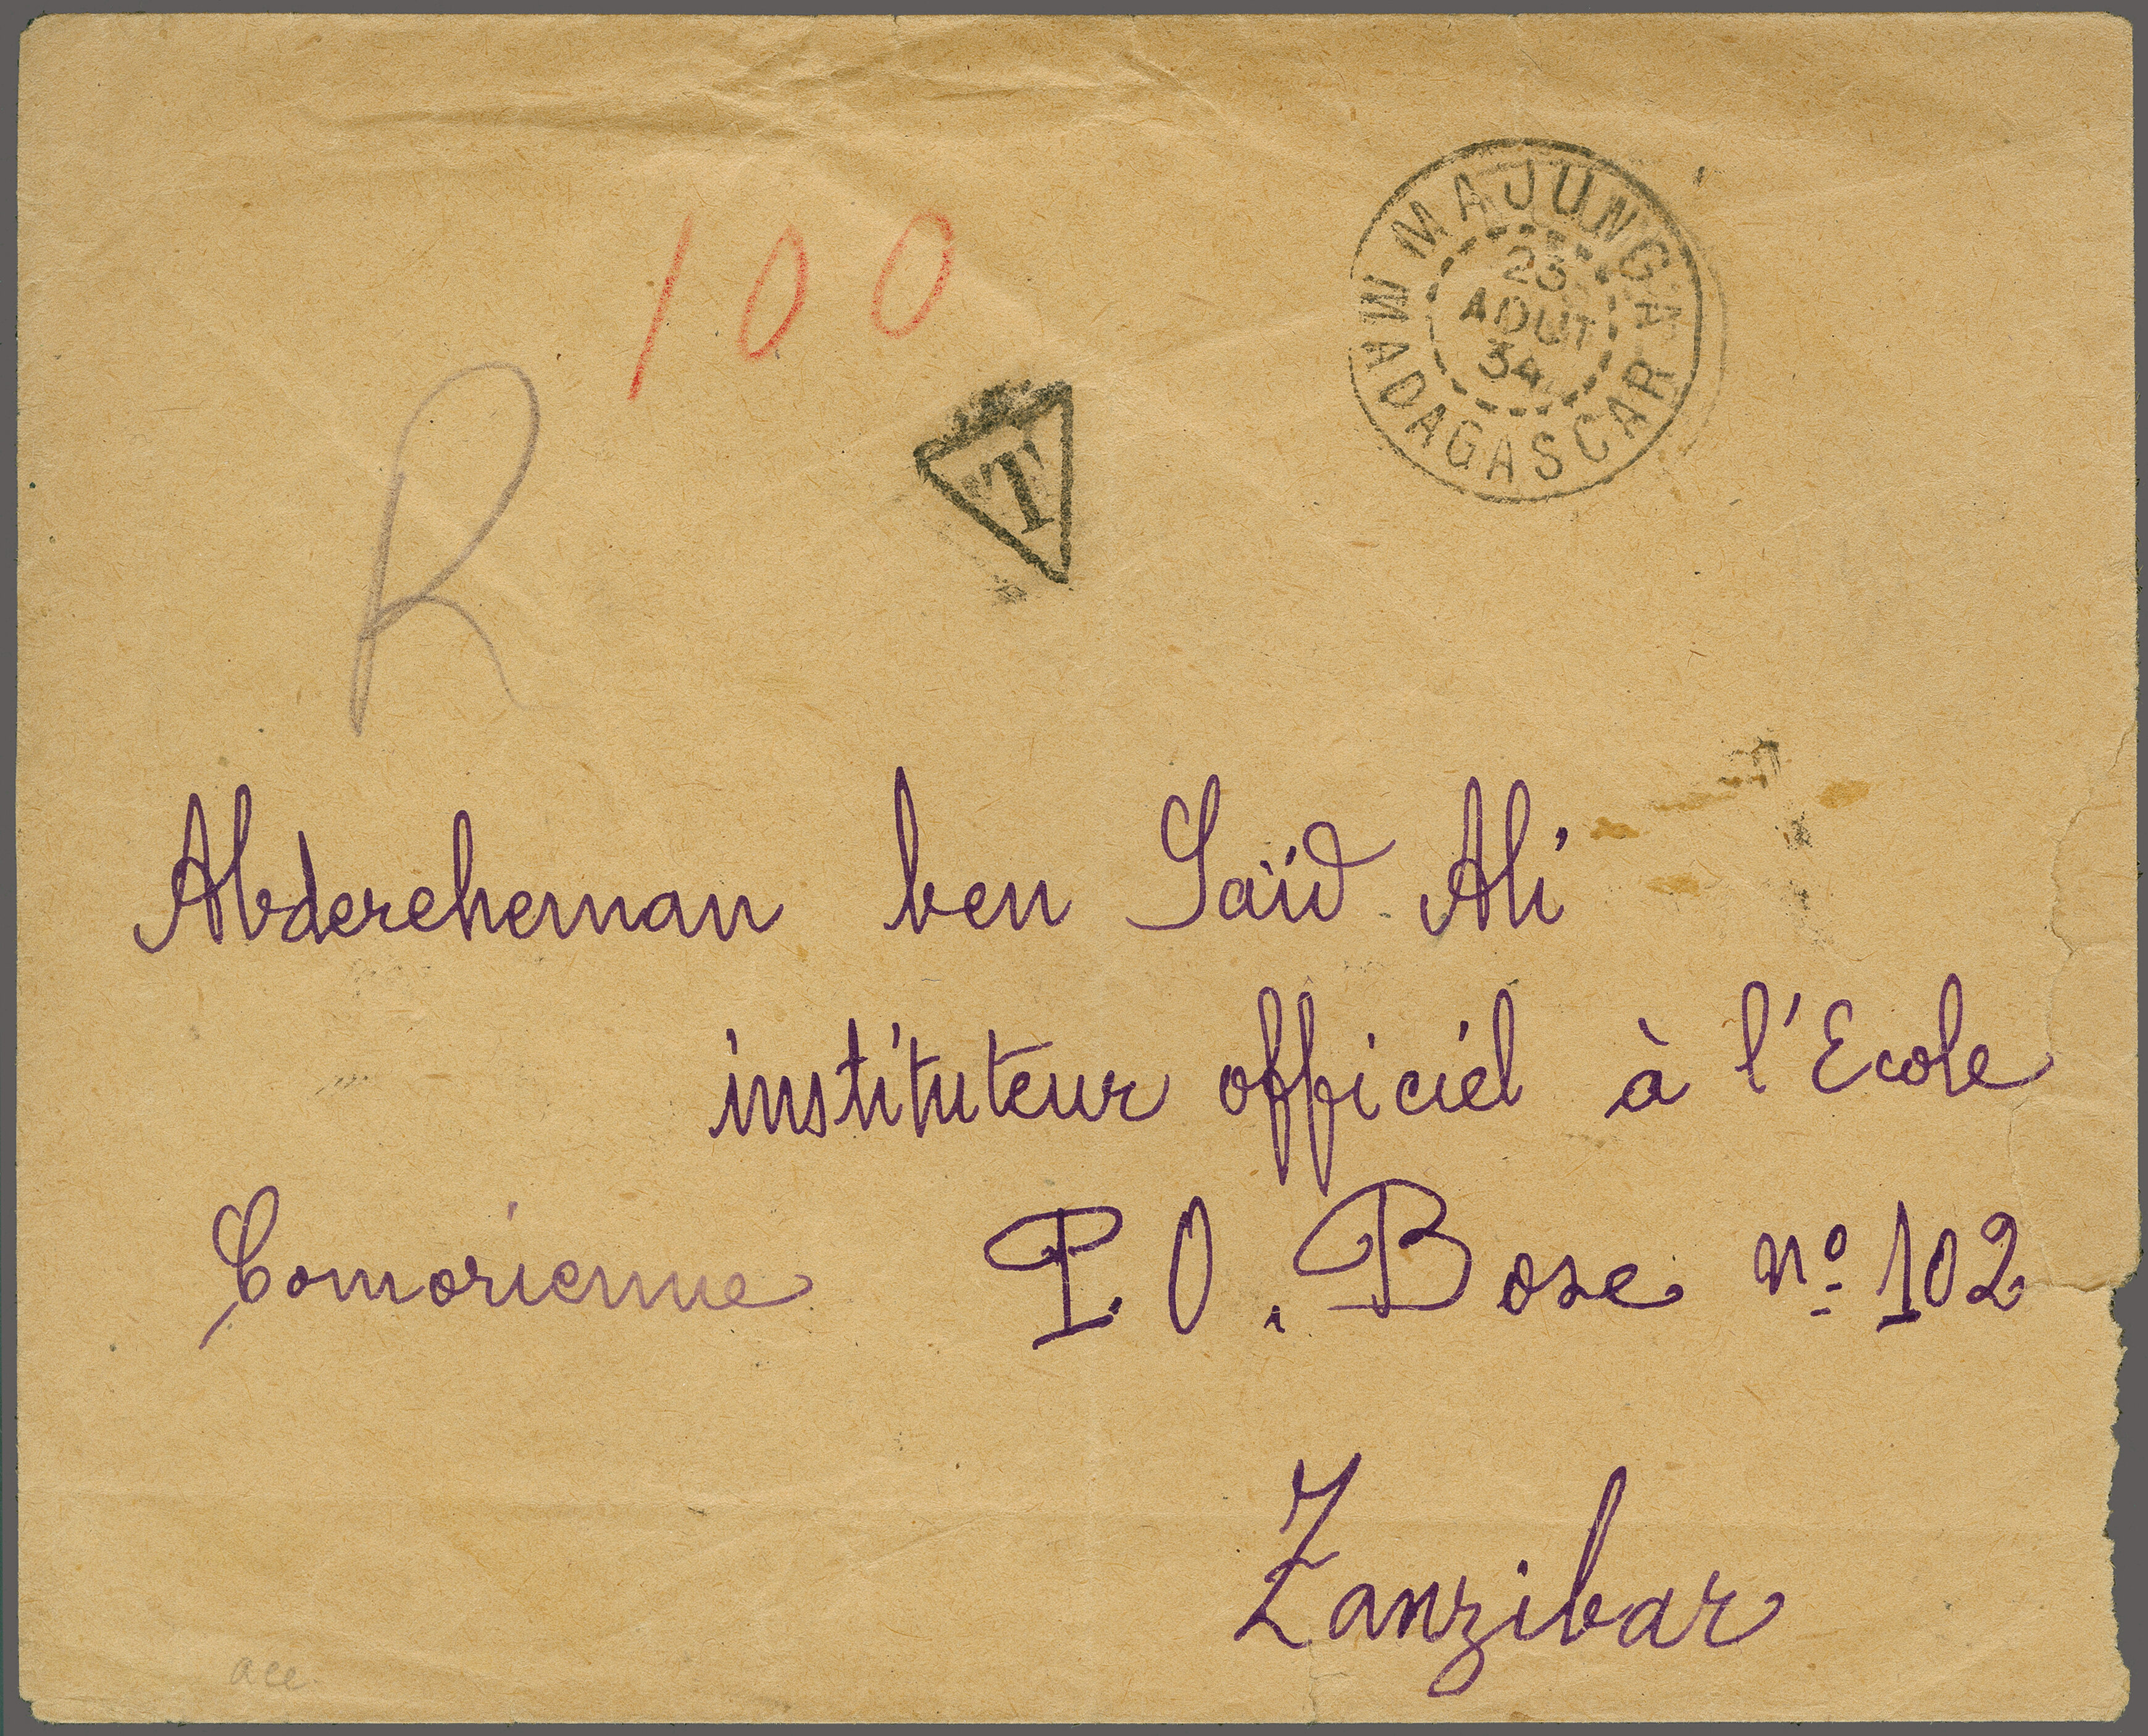 100
MAJUNGA
23
AOUT
34
MADAGASCAR
T
R
Abdereheman ben Saïd Ali
instituteur officiel à l'Ecole
Comorienne P.O. Boxe nº 102
Zanzibar